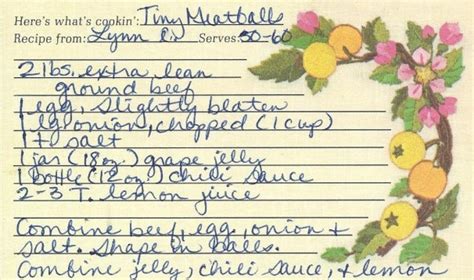 Here's what's cookin': Tiny Meatballs
Recipe from: Lynn C. Serves: 50-60
2 lbs. extra lean
ground beef
1 egg, slightly beaten
1 lg onion, chopped (1 cup)
1 t salt
1 jar (18 oz.) grape jelly
1 Bottle (12 oz.) chili sauce
2-3 T. lemon juice
Combine beef, egg, onion +
salt. Shape in balls.
Combine jelly, chili sauce, + lemon